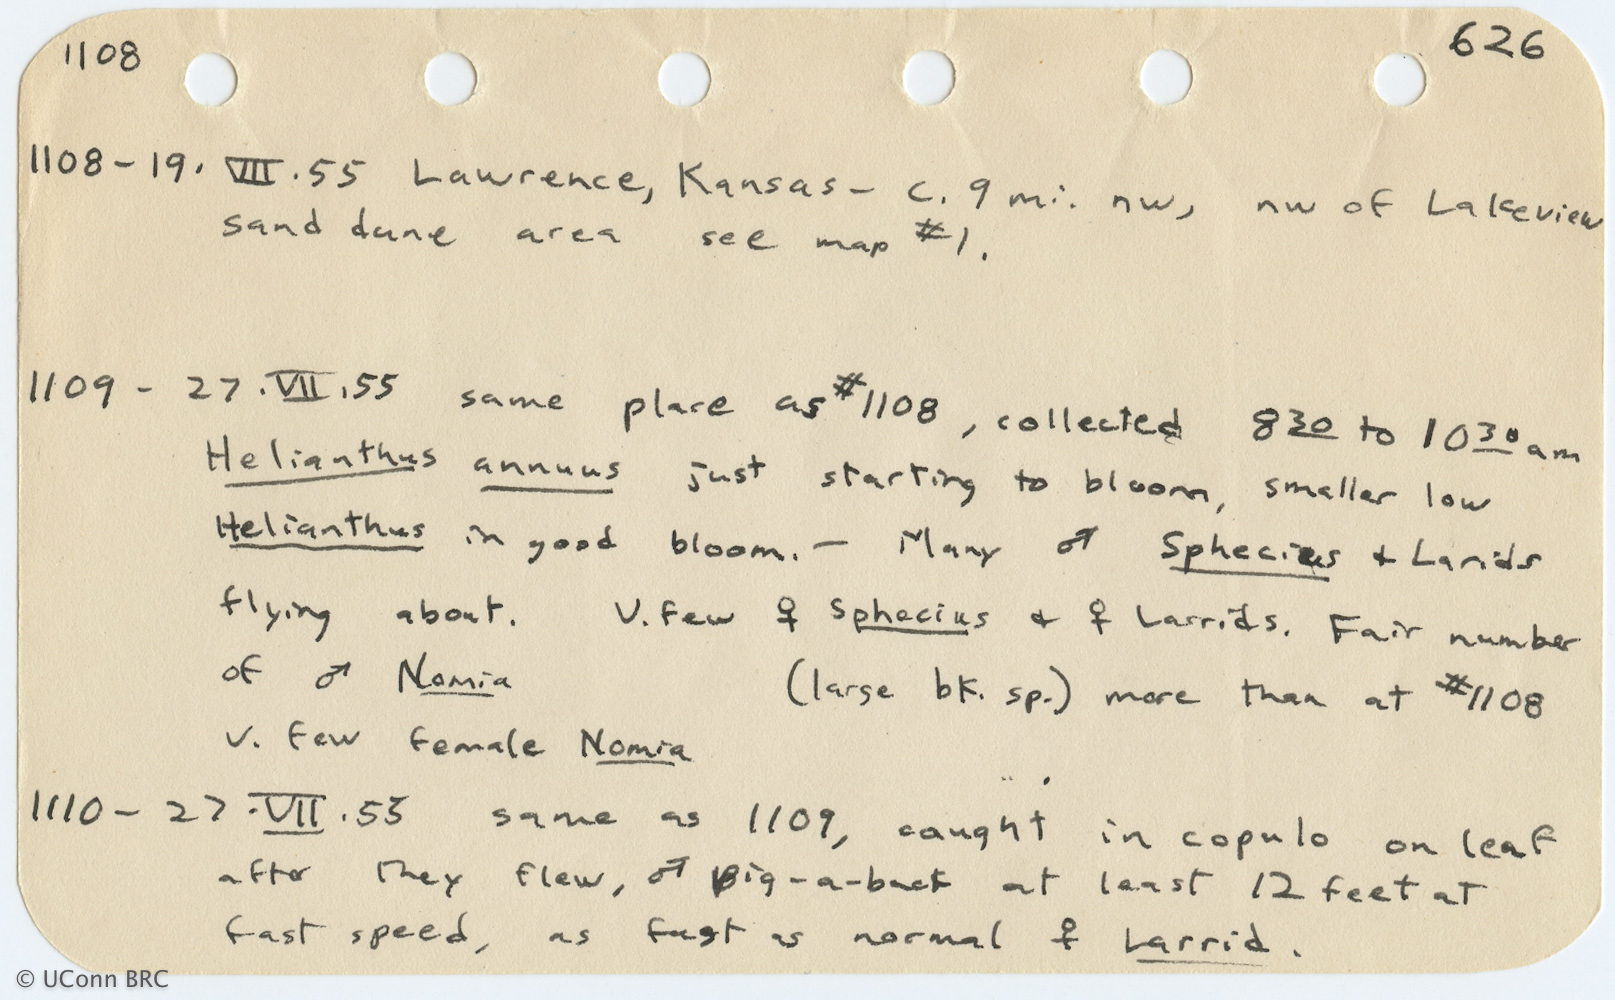 1108
626
1108 - 19. VII .55 Lawrence, Kansas - c. 9 mi. nw, nw of Lakeview
sand dune area see map #1.
1109 - 27 . VII .55 same place as #1108, collected 8 30 to 10 30 am
Helianthus annuus just starting to bloom, smaller low
Helianthus in good bloom. - Many ♂ Sphecius + Larrids
flying about. V. few ♀ Sphecius + ♀ Larrids. Fair number
of ♂ Nomia (large bk. sp.) more than at #1108
v. few female Nomia
1110 - 27 . VII .55 same as 1109, caught in copulo on leaf
after they flew, ♂ pig-a-back at least 12 feet at
fast speed, as fast as normal ♀ Larrid.
© UConn BRC